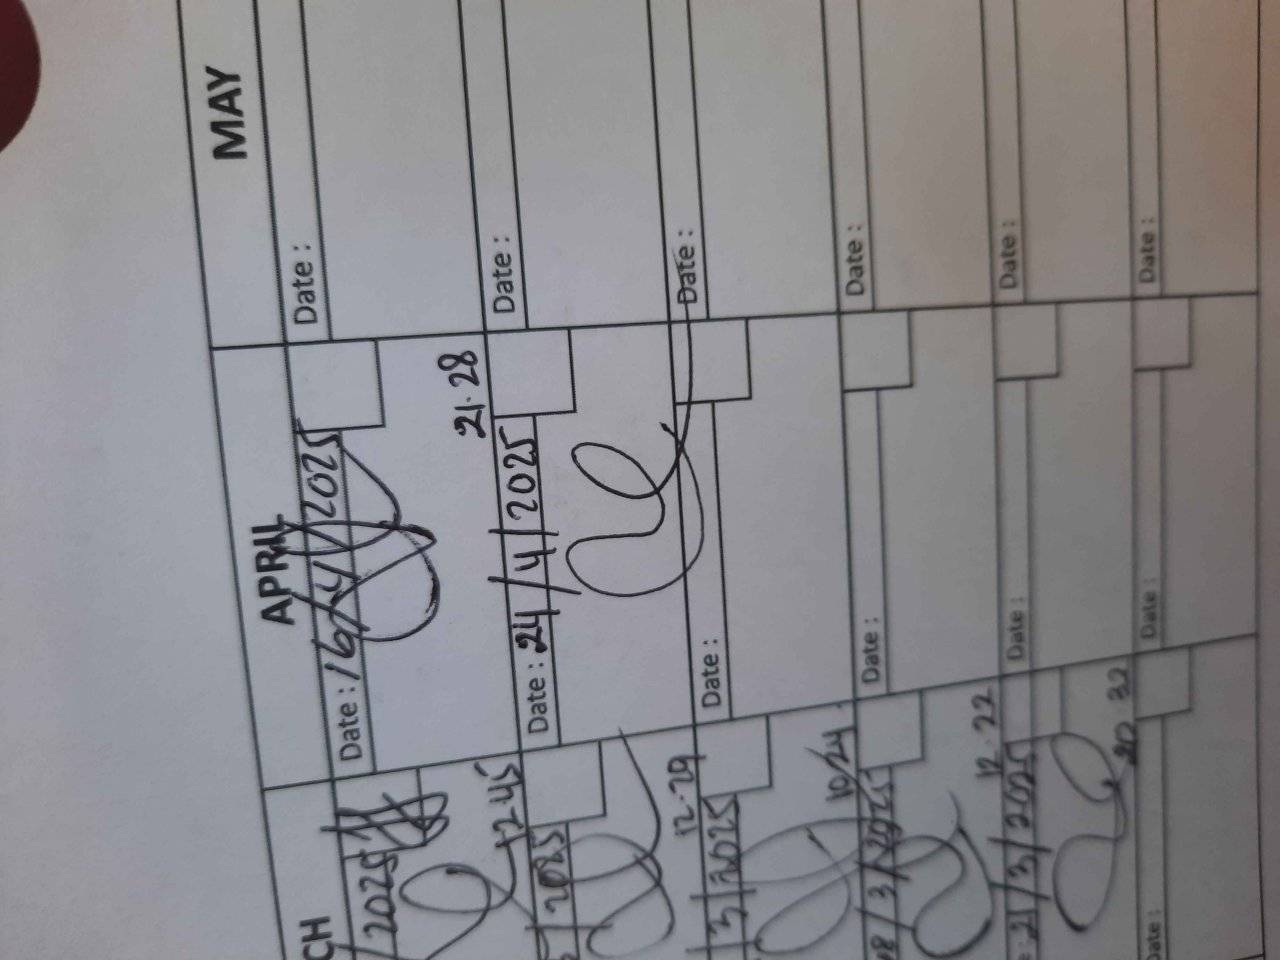 CH
APRIL
MAY
2025
Date : 16/4/2025
Date :
12-45
21.28
2025
Date : 24/4/2025
Date :
12.29
3/2025
Date :
Date :
10/24
18/3/2025
Date :
Date :
12.22
: 21/3/2025
Date :
Date :
32
Date :
Date :
Date :